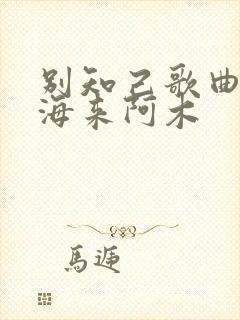 别知己歌曲
海来阿木
馬迎